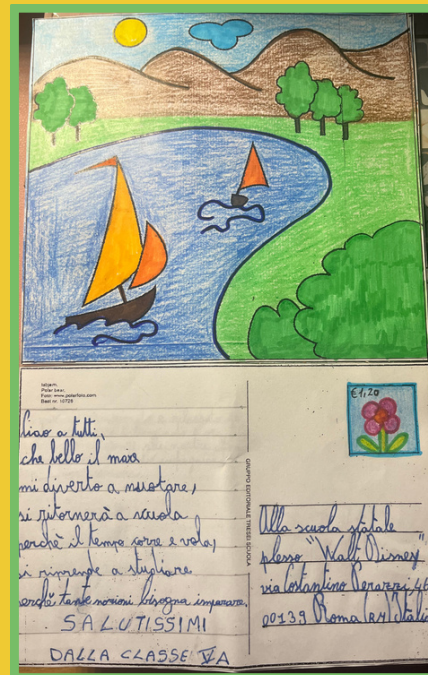 Isbjørn,
Polar bear,
Foto: www.polarfoto.com
Best nr. 10725
€1,20
Ciao a tutti,
che bello il mare
mi diverto a nuotare,
si ritornerà a scuola
perchè il tempo corre e vola,
si riprende a studiare
perchè tante nozioni bisogna imparare.
SALUTISSIMI
DALLA CLASSE VA
GRUPPO EDITORIALE TRESEI SCUOLA
Alla scuola statale
plesso "Walt Disney"
via Costantino Perazzi, 46
00139 Roma (RM) Italia